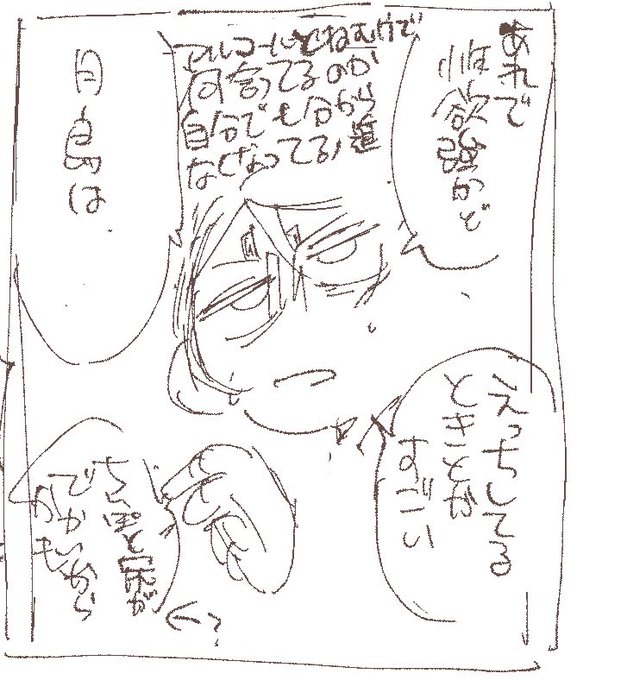 あれで
性欲強かど
アルコールとねむけで
何言ってるのか
自分でも分から
なくなってる
月島は
えっちしてる
ときとか
すごい
でかいから